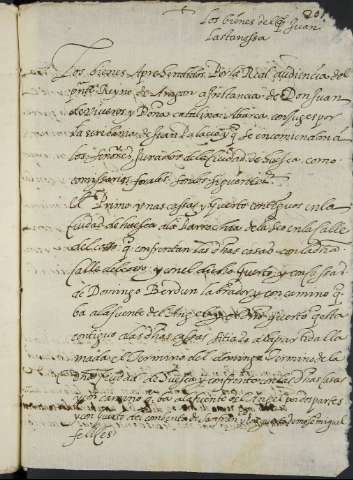 201
Los bienes de Juan
Lastanossa
Los bienes Aprehendidos Por la Real Audiencia del
pnte Reyno de Aragon a Instancia de Don Juan
de Viueros y Doña catalina Abarca conjuges por
la scribania de Juan y q se encomiendan a
los señores Jurados de la Ciudad de huesca como
comissarios forales son los siguientes
Primo vnas cassas y guerto contiguos en la
ciudad de huesca a la Parrochia de la seo en la calle
del cosso q confrontan las dhas casas con la dha
calle del cosso y con el dicho guerto y con cassas
de Domingo Berdun labrador y con camino q
ba a la fuente del Angel y vn guerto
contiguo a las dhas casas sitiado a la partida lla
mada el Termino del termino de la
dha ciudad de huesca q confronta con las dhas casas
y con camino q ba a la fuente del Angel por dos partes
y con guerto del conuento de